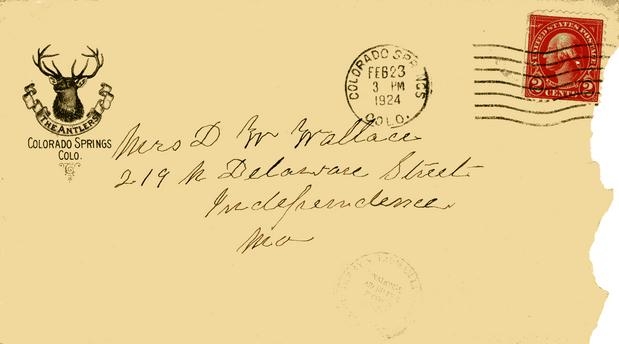 THE ANTLERS
COLORADO SPRINGS
COLO.
COLORADO SPRINGS
FEB 23
3 PM
1924
COLO.
UNITED STATES POSTAGE
2 CENTS 2
Mrs D W Wallace
219 N Delaware Street
Independence
Mo